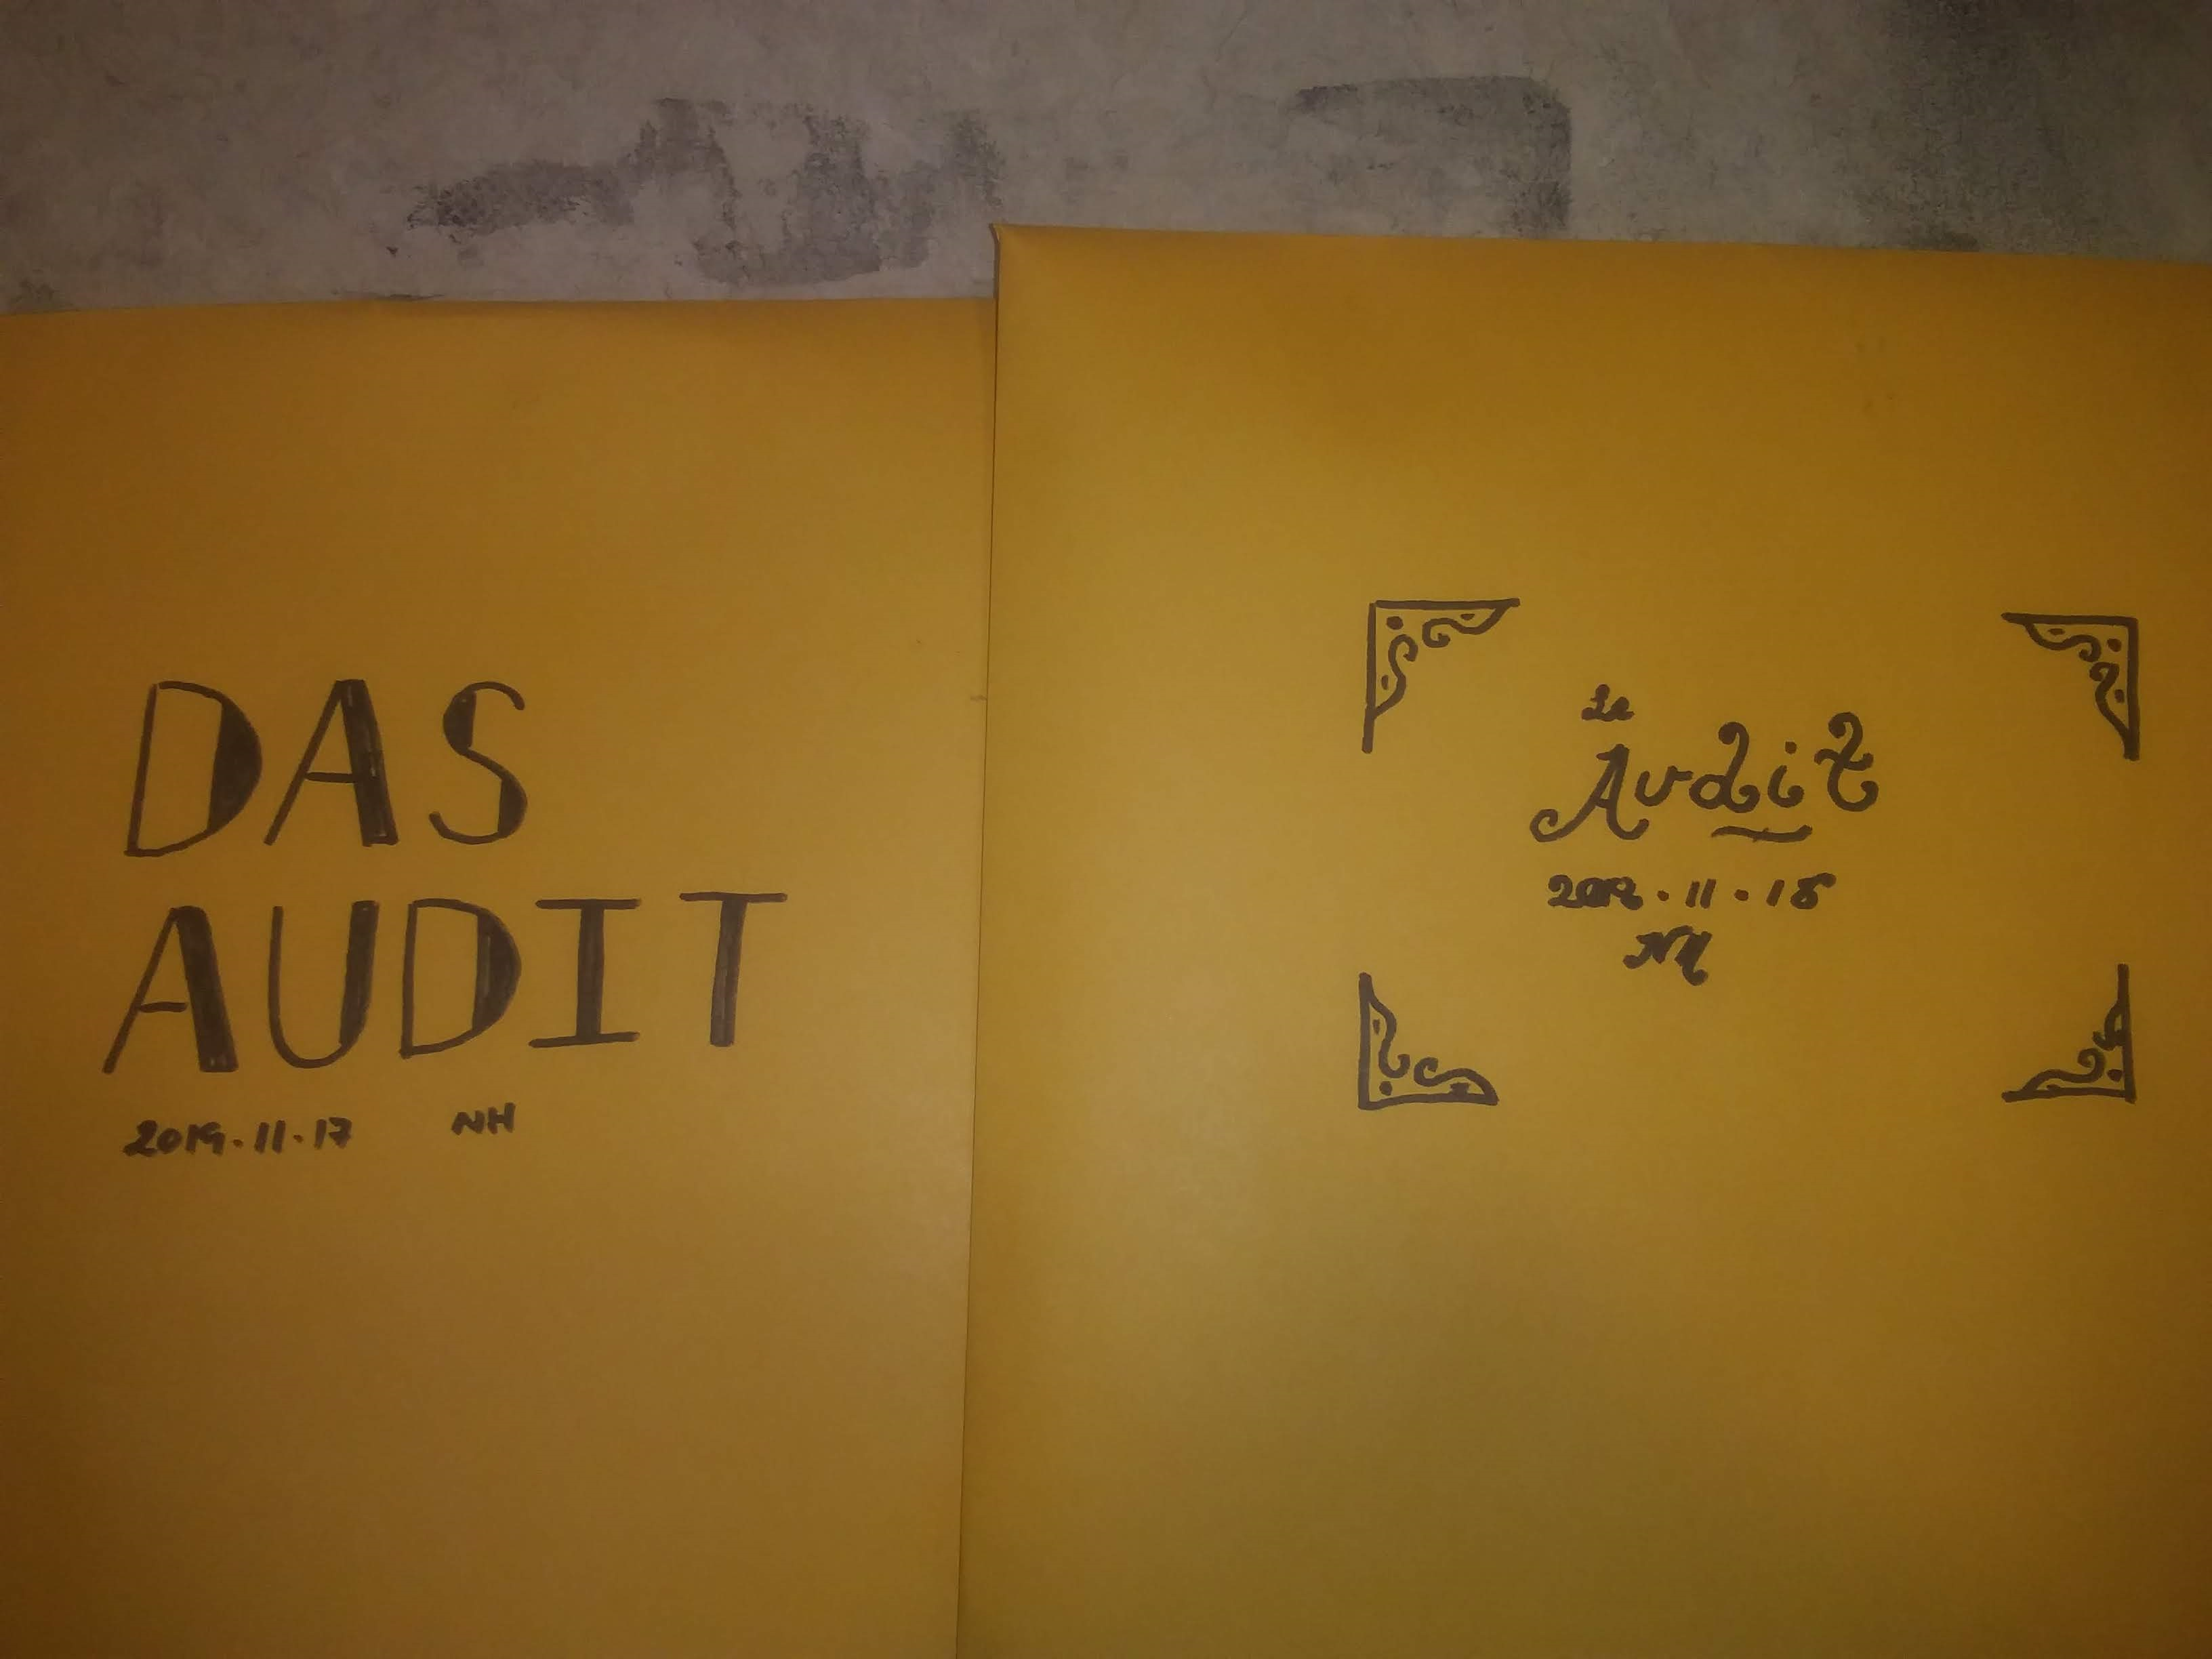 DAS
AUDIT
2019.11.17 NH
Le
Audit
2019.11.18
NH